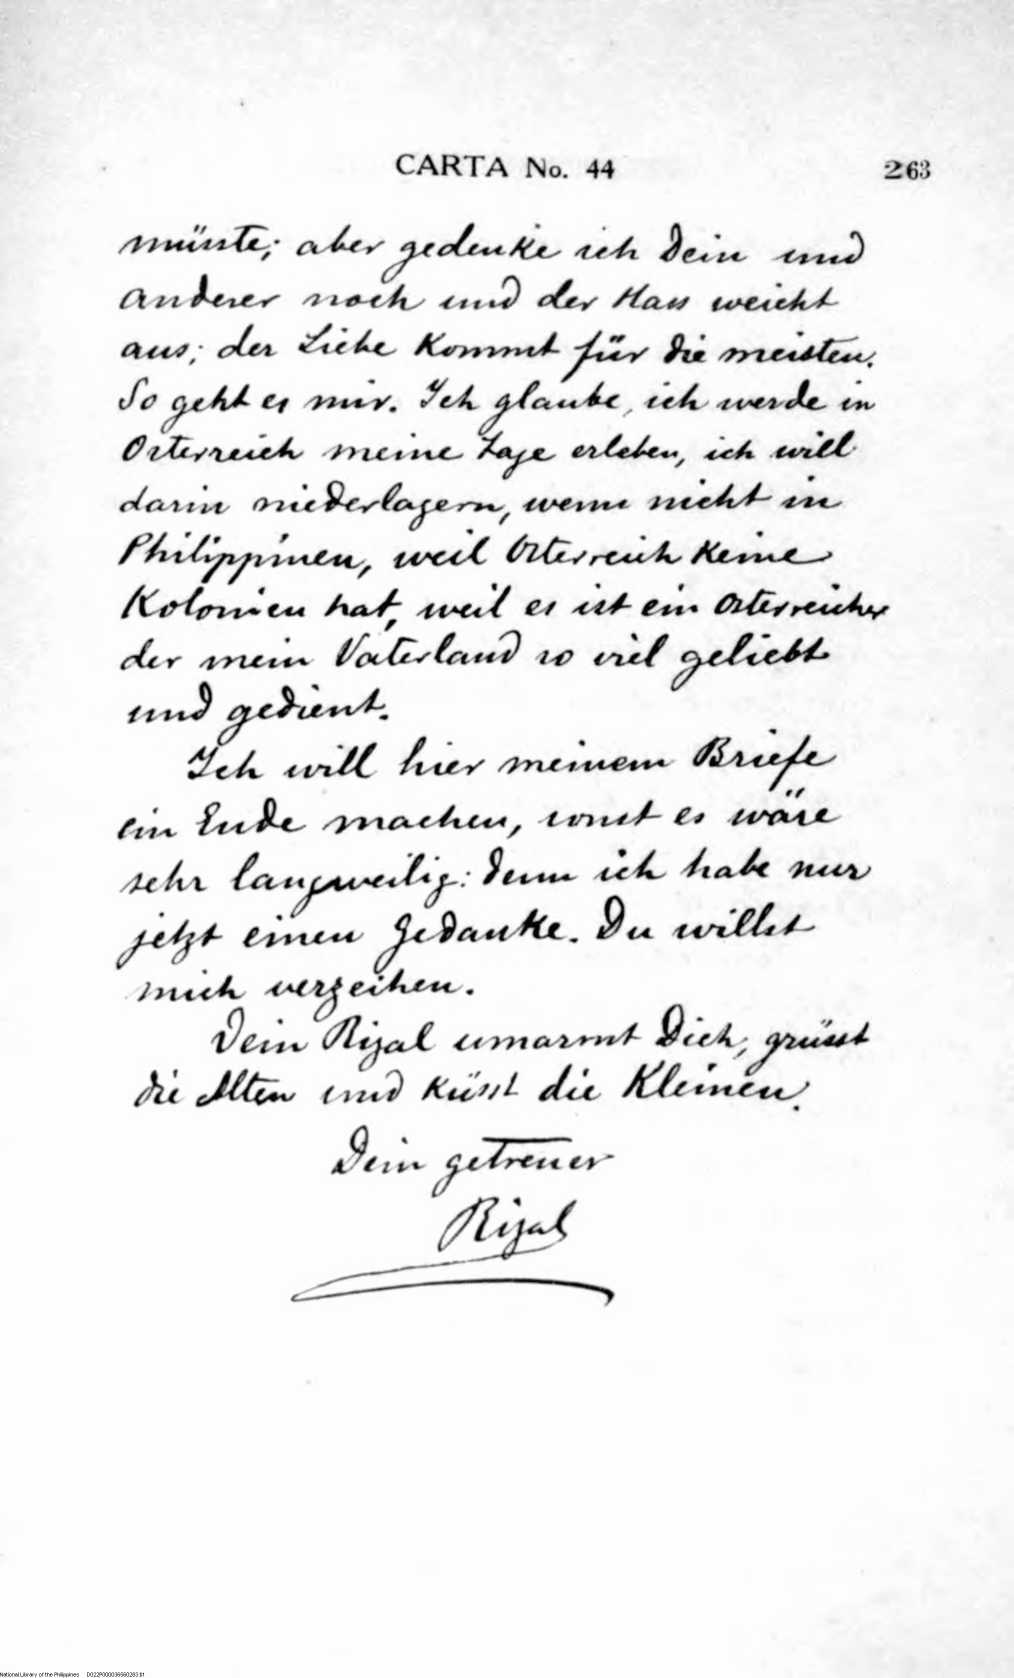 CARTA No. 44 263
müsste; aber gedenke ich Dein und
anderer noch und der Hass weicht
aus; der Liebe kommt für die meisten.
So geht es mir. Ich glaube, ich werde in
Osterreich meine Tage erleben, ich will
darin niederlagern, wenn nicht in
Philippinen, weil Osterreich keine
Kolonien hat, weil es ist ein Osterreicher
der mein Vaterland so viel geliebt
und gedient.
Ich will hier meinem Briefe
ein Ende machen, sonst es wäre
sehr langweilig: denn ich habe nur
jetzt einen Gedanke. Du willst
mich verzeihen.
Dein Rizal umarmt Dich, grüsst
die Alten und küsst die Kleinen.
Dein getreuer
Rizal
National Library of the Philippines